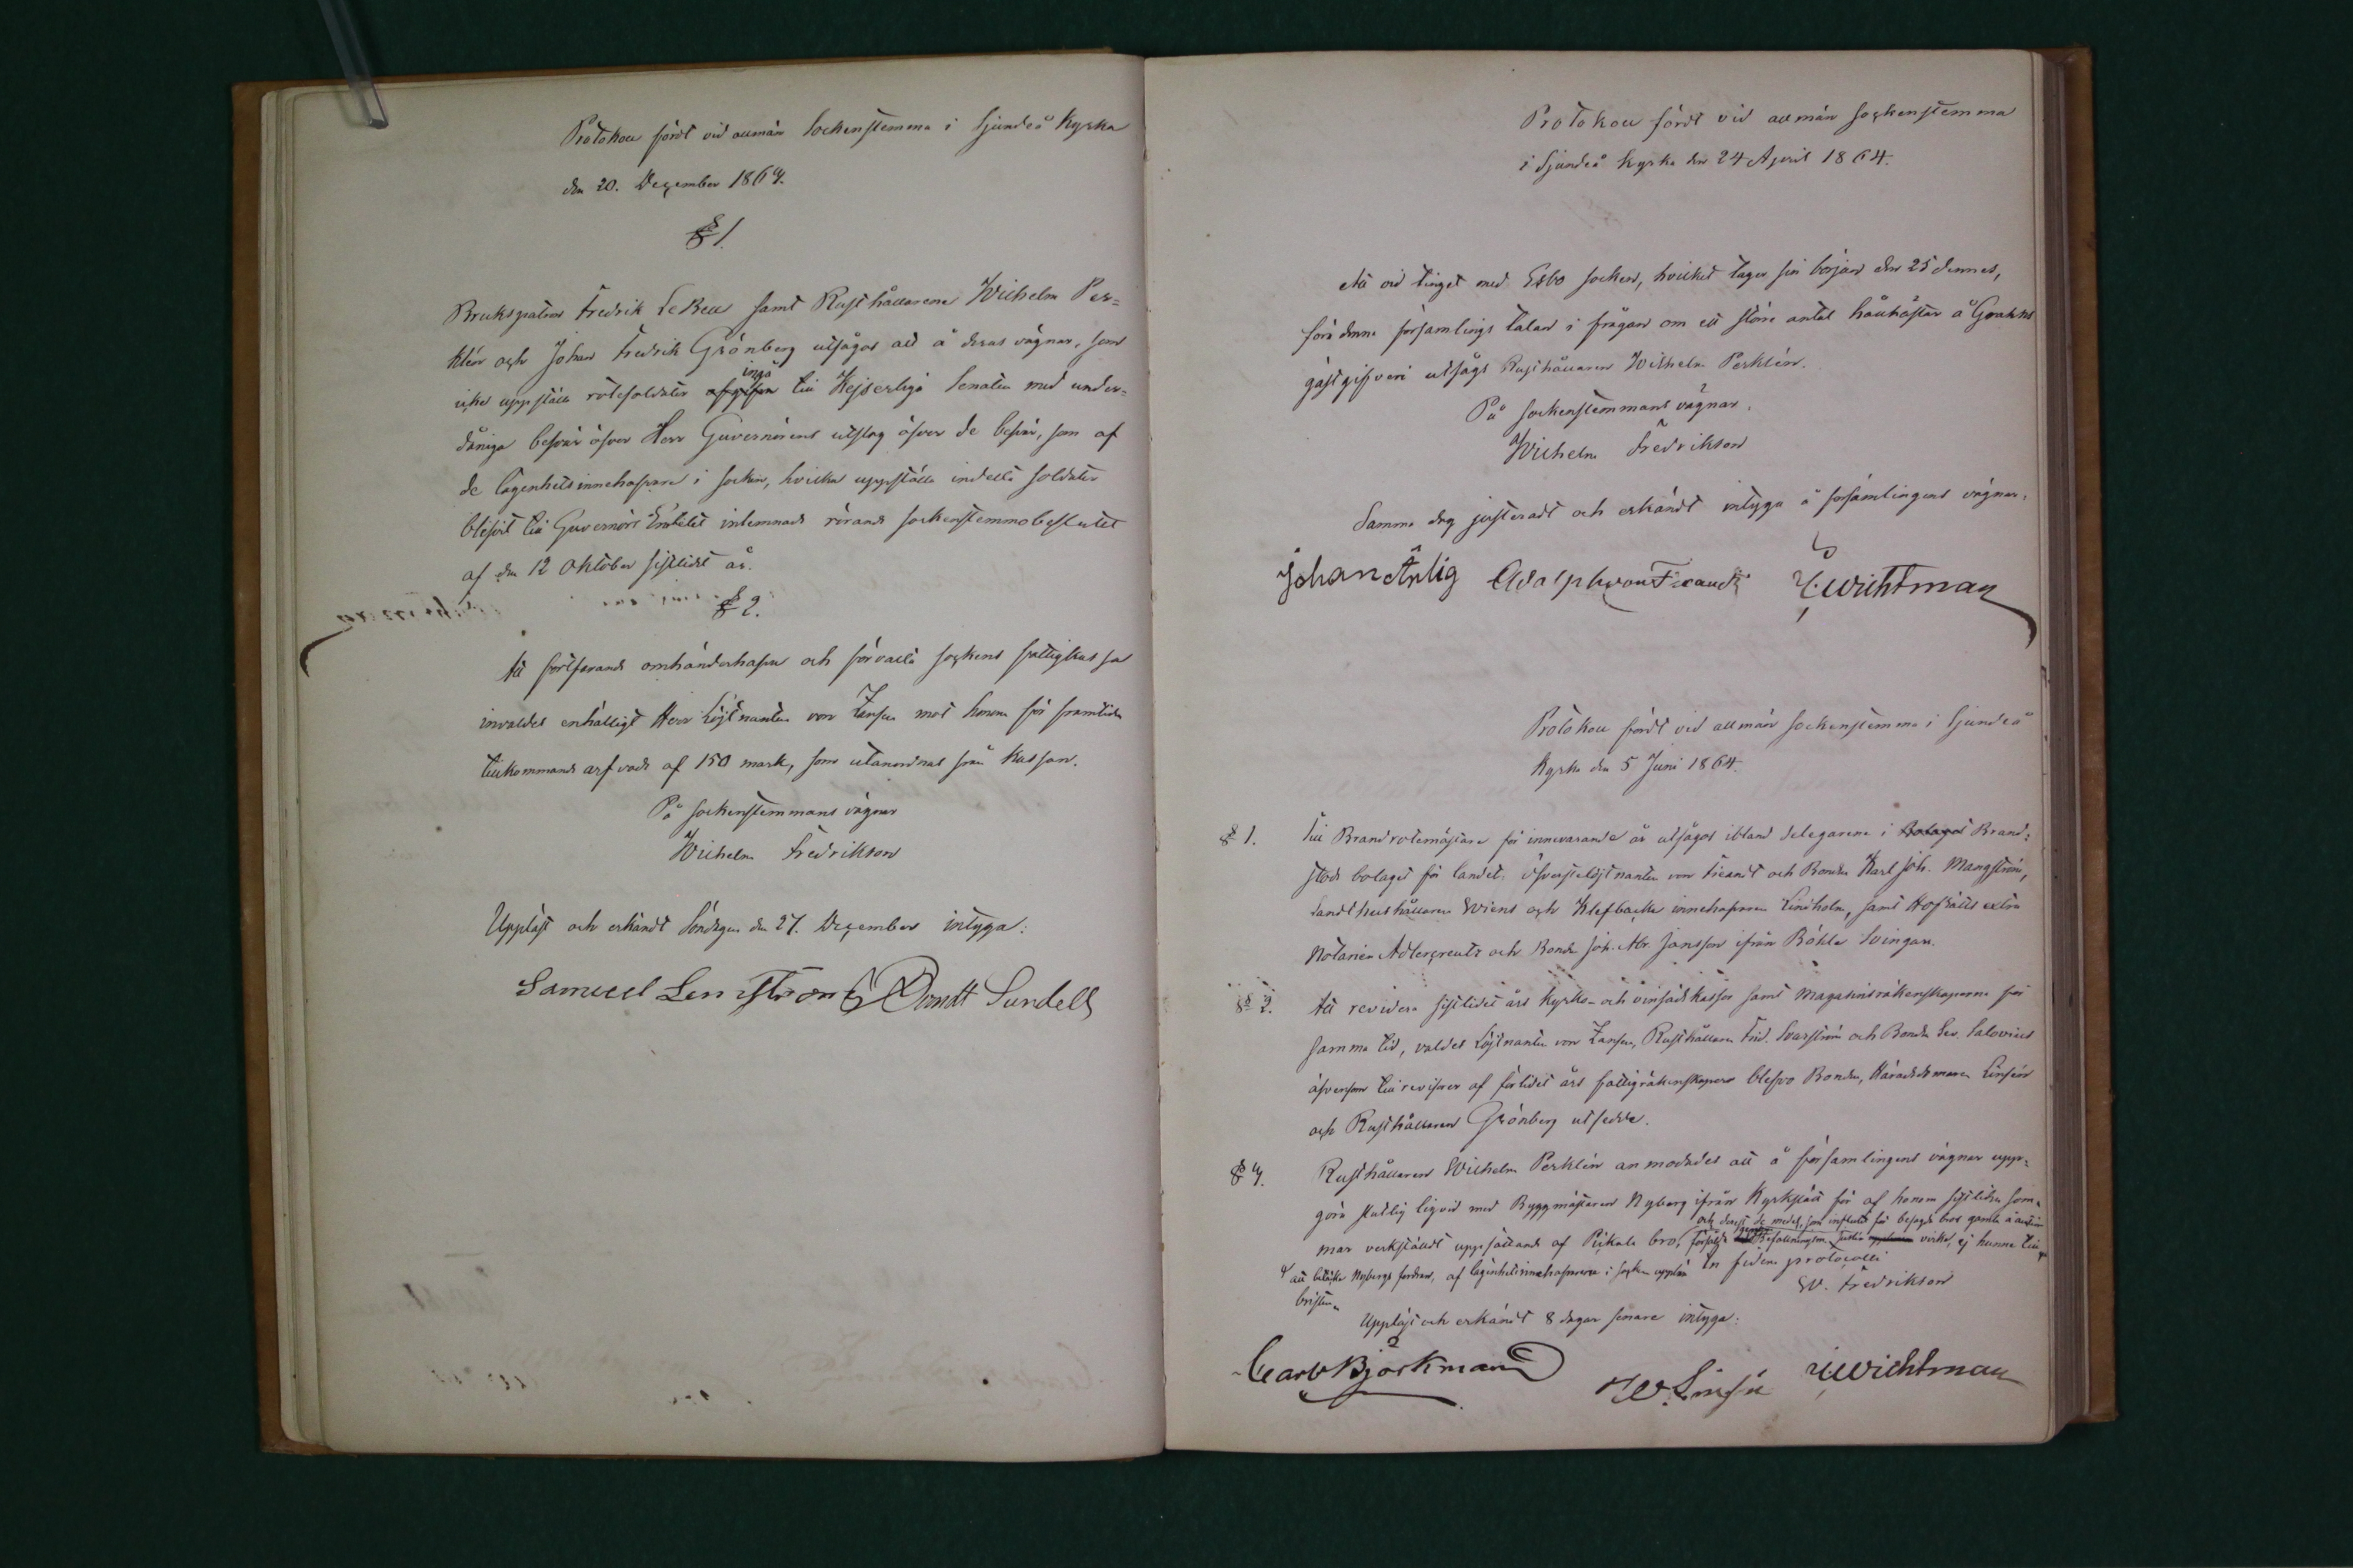 Protokoll fördt vid allmän Sockenstemma i Sjundeå Kyrka
den 20. December 1863.
§ 1.
Brukspatron Fredrik LeBell samt Rusthållarene Wilhelm Per=
klén och Johan Fredrik Grönberg utsågos att å deras vägnar, som
icke uppställa rotesoldater ingå till Kejserliga Senaten med under=
dåniga besvär öfver Herr Guvernörens utslag öfver de besvär, som af
de lägenhetsinnehafvare i socken, hvilka uppställa indelta soldater
blifvit till Guvernörs Embetet inlemnade rörande sockenstemmobeslutet
af den 12 Oktober sistlidet år.
§ 2.
Att fortfarande omhänderhafva och förvalta sockens fattigkassa
invaldes enhälligt Herr Löjtnanten von Zansen mot honom för framtiden
tillkommande arfvode af 150 mark, som utanordnas från kassan.
På sockenstemmans vägnar
Wilhelm Fredrikson
Uppläst och erkändt Söndagen den 27. December intyga:
Samuel Lenström Berndt Sundell
Protokoll fördt vid allmän sockenstemma
i Sjundeå kyrka den 24 April 1864.
Att vid tinget med Esbo socken, hvilket tager sin början den 25 dennes,
föra denna församlings talan i frågan om ett större antal hållhästar å Grakks
gästgifveri utsågs Rusthållaren Wilhelm Perklén.
På sockenstemmans vägnar.
Wilhelm Fredrikson
Samma dag justeradt och erkändt intyga å församlingens vägnar.
Johan Ärlig Adolph von Fieandt Wichtman
Protokoll fördt vid allmän sockenstemma i Sjundeå
Kyrka den 5 Juni 1864.
§ 1. Till Brandrotemästare för innevarande år utsågos ibland delegarena i Bolaget Brand=
stods bolaget för landet, Öfverstelöjtnanten von Fieandt och Bonden Karl Joh. Mangström,
Landthushållaren Wiens och Klefbacka innehafvaren Lindholm, samt Hofrätts extra
Notarien Adlercreutz och Bonden Joh. Abr. Jansson ifrån Böhle Svingars.
§ 2. Att revidera sistlidet års kyrko- och vinsädskassor samt Magasinsräkenskaperna för
samma tid, valdes Löjtnanten von Zansen, Rusthållaren Frid. Svarström och Bonden Sev. Salovius
äfvensom till revisorer af förlidet års fattigräkenskaper blefvo Bonden, Häradsdomaren Linsén
och Rusthållaren Grönberg utsedde.
§ 3. Rusthållaren Wilhelm Perklén anmodades att å församlingens vägnar upp=
göra slutlig liqvid med Byggmästaren Nyberg ifrån Kyrkslätt för af honom sistliden som=
mar verkställdt uppsättande af Pickala bro,
och derest de medel, som influtit för besagde bros gamla å auktion
försålda virke, ej kunna till
att betäcka Nybergs fordran, af lägenhetsinnehafvarena i socken
bristen.
In fidem protocolli
W. Fredrikson
Uppläst och erkändt 8 dagar senare intyga:
Carl Björkman W. Linsén Wichtman